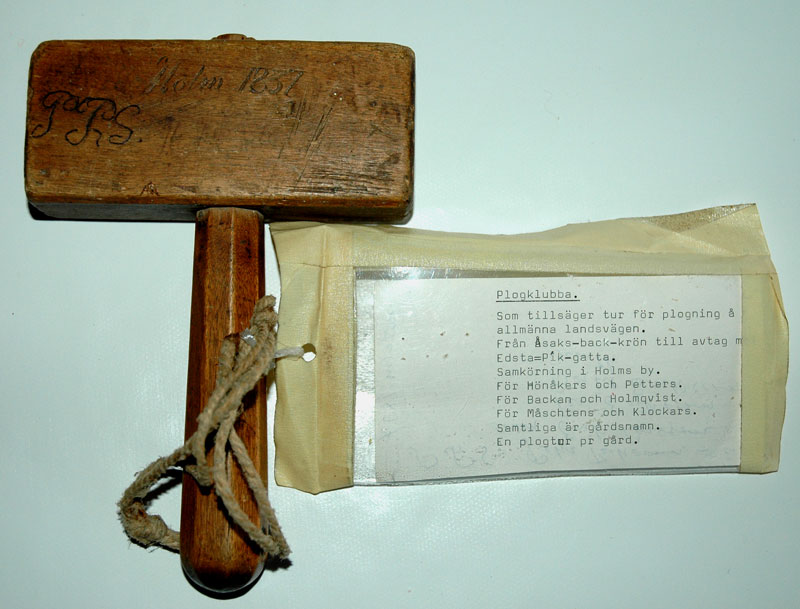 Holm 1837
Plogklubba.
Som tillsäger tur för plogning å
allmänna landsvägen.
Från Åsaks-back-krön till avtag m
Edsta=Pik-gatta.
Samkörning i Holms by.
För Mönåkers och Petters.
För Backan och Holmqvist.
För Måschtens och Klockars.
Samtliga är gårdsnamn.
En plogtur pr gård.